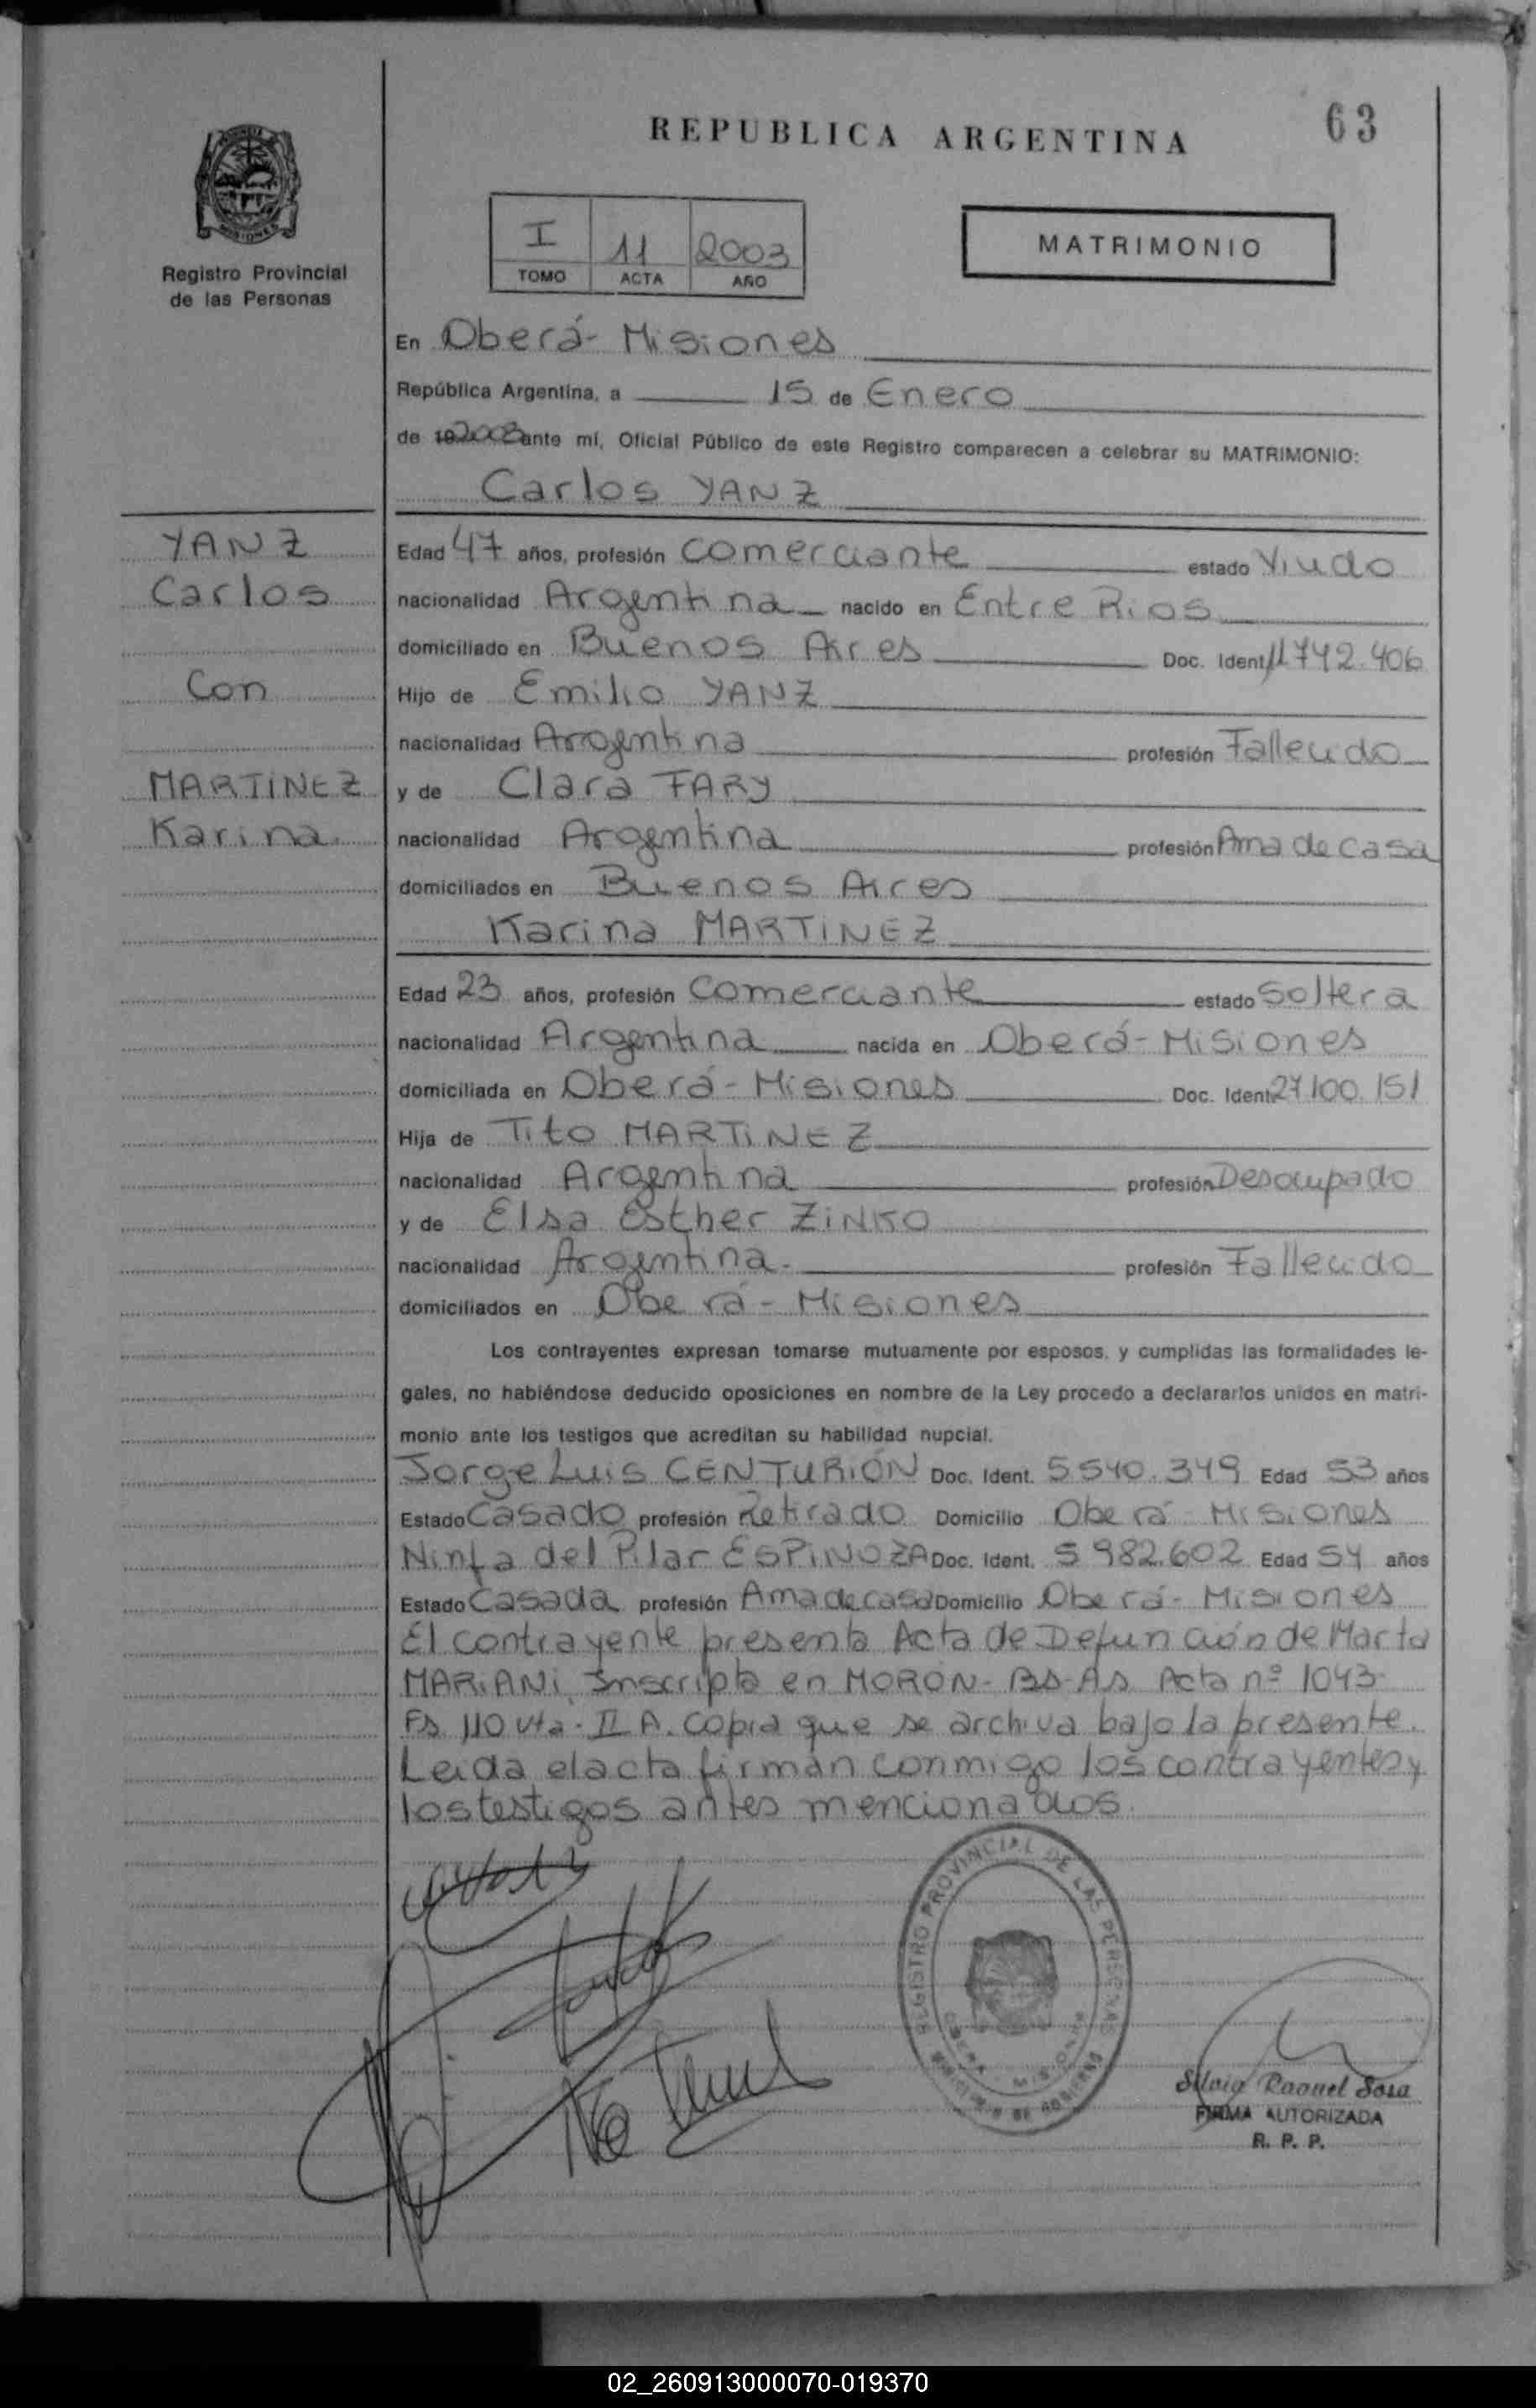 63
REPUBLICA ARGENTINA
MISIONES
Registro Provincial
de las Personas
I 11 2003
TOMO ACTA AÑO
MATRIMONIO
En Oberá - Misiones
República Argentina, a 15 de Enero
de 19 2003 ante mí, Oficial Público de este Registro comparecen a celebrar su MATRIMONIO:
Carlos YANZ
YANZ
Carlos
Con
MARTINEZ
Karina
Edad 47 años, profesión Comerciante estado Viudo
nacionalidad Argentina nacido en Entre Rios
domiciliado en Buenos Aires Doc. Ident. 11742.406
Hijo de Emilio YANZ
nacionalidad Argentina profesión Fallecido
y de Clara FARY
nacionalidad Argentina profesión Ama de casa
domiciliados en Buenos Aires
Karina MARTINEZ
Edad 23 años, profesión Comerciante estado Soltera
nacionalidad Argentina nacida en Oberá - Misiones
domiciliada en Oberá - Misiones Doc. Ident. 27100.151
Hija de Tito MARTINEZ
nacionalidad Argentina profesión Desocupado
y de Elsa Esther ZINKO
nacionalidad Argentina. profesión Fallecido
domiciliados en Oberá - Misiones
Los contrayentes expresan tomarse mutuamente por esposos, y cumplidas las formalidades le-
gales, no habiéndose deducido oposiciones en nombre de la Ley procedo a declararlos unidos en matri-
monio ante los testigos que acreditan su habilidad nupcial.
Jorge Luis CENTURIÓN Doc. Ident. 5540.349 Edad 53 años
Estado Casado profesión Retirado Domicilio Oberá - Misiones
Ninfa del Pilar ESPINOZA Doc. Ident. 5982.602 Edad 54 años
Estado Casada profesión Ama de casa Domicilio Oberá - Misiones
El contrayente presenta Acta de Defunción de Marta
MARIANI, Inscripta en MORÓN - BS - AS Acta nº 1043
Fs. 110 Vta - II A. Copia que se archiva bajo la presente.
Leida el acta firman conmigo los contrayentes y
los testigos antes mencionados.
REGISTRO PROVINCIAL DE LAS PERSONAS
OBERA - MISIONES
MINISTERIO DE GOBIERNO
Silvia Raquel Sosa
FIRMA AUTORIZADA
R. P. P.
02_260913000070-019370